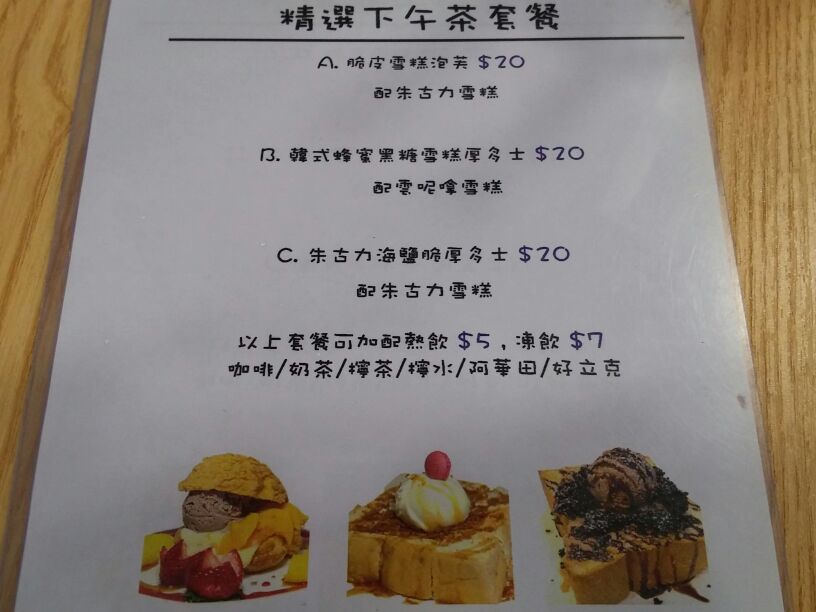 精選下午茶套餐
A. 脆皮雪糕泡芙 $20
配朱古力雪糕
B. 韓式蜂蜜黑糖雪糕厚多士 $20
配雲呢拿雪糕
C. 朱古力海鹽脆厚多士 $20
配朱古力雪糕
以上套餐可加配熱飲 $5 , 凍飲 $7
咖啡/奶茶/檸茶/檸水/阿華田/好立克